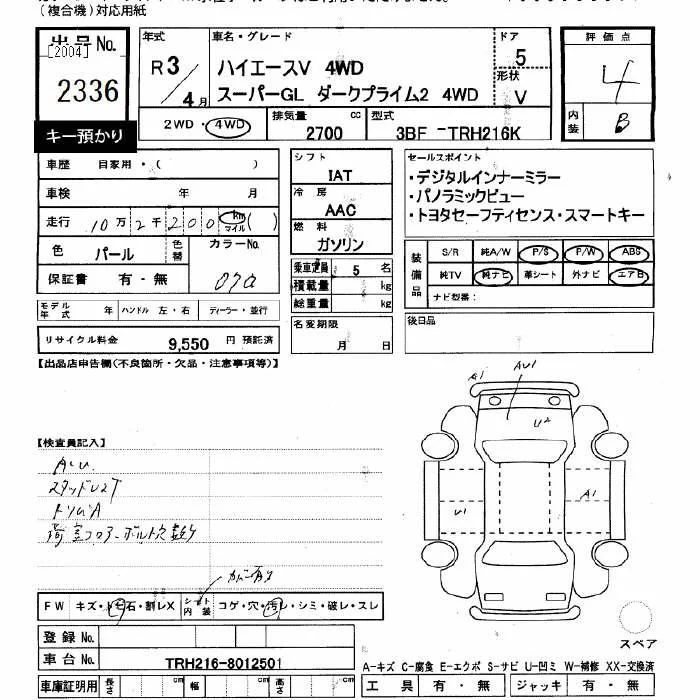 (複合機)対応用紙
出品No.
[2004]
2336
キー預かり
年式
R3/4月
車名・グレード
ハイエースV 4WD
スーパーGL ダークプライム2 4WD
ドア
5
形状
V
2WD・4WD
排気量
2700 cc
型式
3BF-TRH216K
評価点
4
内装
B
車歴 自家用・( )
車検 年 月
走行 10万2千200 km マイル ( )
色 パール
色替
カラーNo.
070
保証書 有・無
モデル年式 年
ハンドル 左・右
ディーラー・並行
リサイクル料金 9,550 円 預託済
シフト
IAT
冷房
AAC
燃料
ガソリン
乗車定員 5 名
積載量 kg
総重量 kg
名変期限
月 日
セールスポイント
・デジタルインナーミラー
・パノラミックビュー
・トヨタセーフティセンス・スマートキー
装備品
S/R 純A/W P/S P/W ABS
純TV 純ナビ 革シート 外ナビ エアB
ナビ型番:
後日品
【出品店申告欄(不良箇所・欠品・注意事項等)】
【検査員記入】
A.U.
スタッドレスT
トリムA
荷室フロアーボルト欠
A1
AU1
U2
U1
A1
FW キズ・トビ石・割レX
シート内装 コゲ・穴・汚レ・シミ・破レ・スレ
登録No.
車台No. TRH216-8012501
車庫証明用 長さ cm 幅 cm 高さ cm
スペア
A-キズ C-腐食 E-エクボ S-サビ U-凹ミ W-補修 XX-交換済
工具 有・無 ジャッキ 有・無